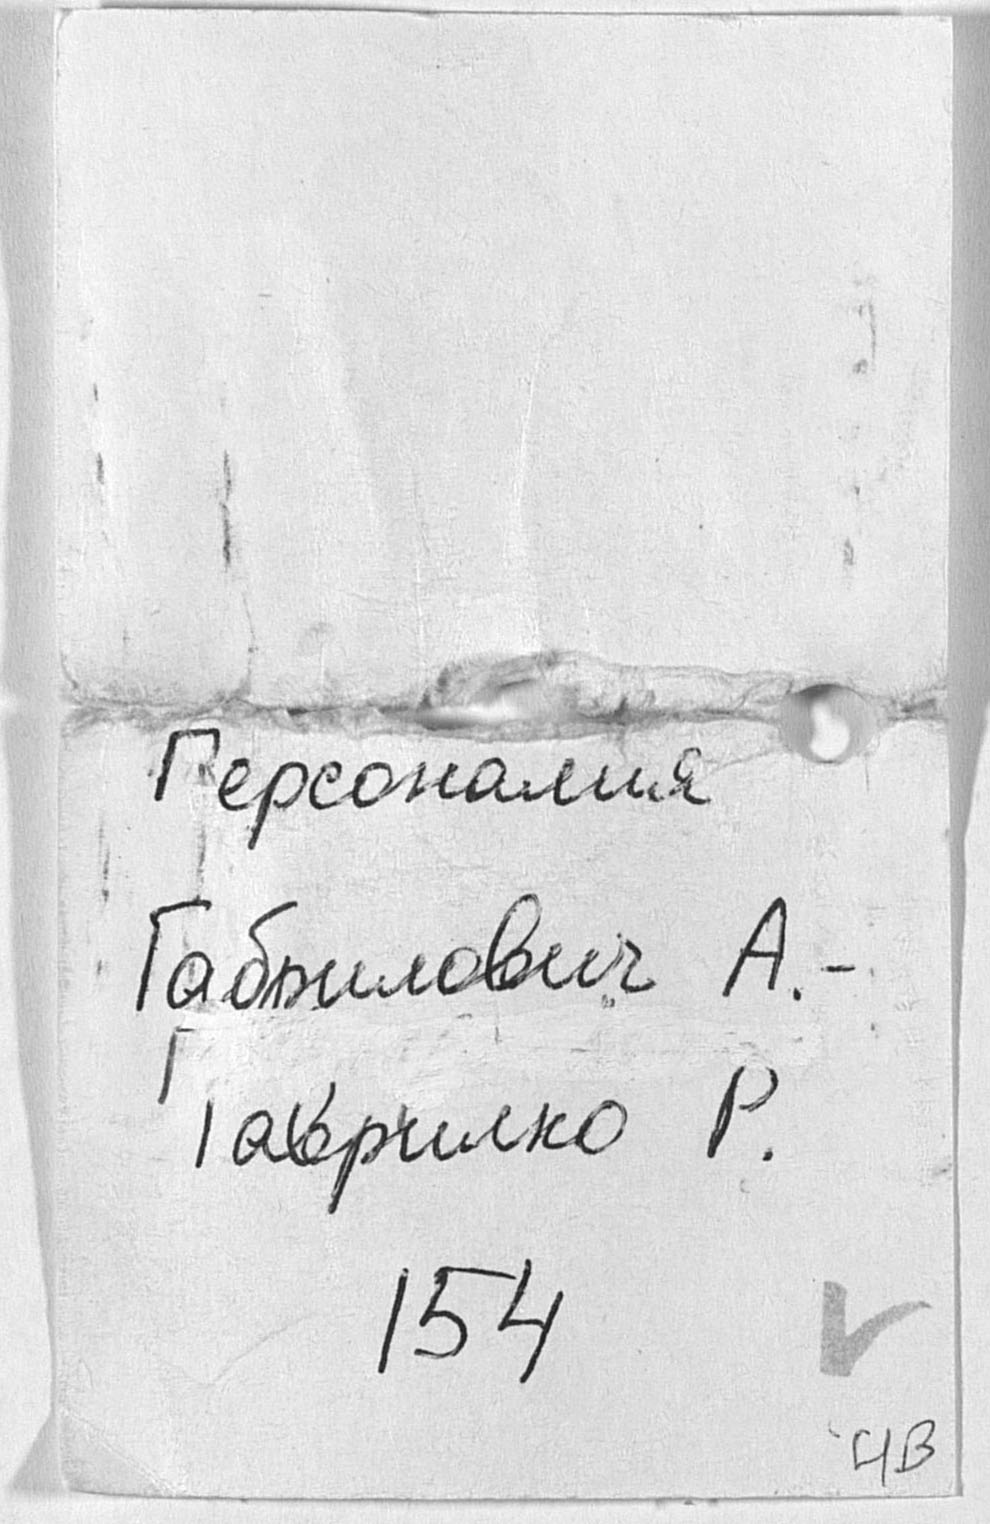 Персоналия
Габрилович А.-
Гаврилко Р.
154
ЧВ